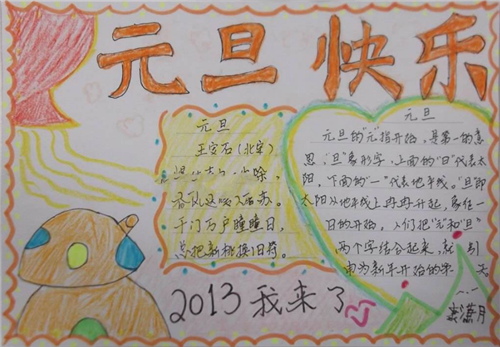 元旦快乐
元旦
王安石(北宋)
春风送暖入屠苏。
千门万户瞳瞳日,
总把新桃换旧符。
元旦
元旦的"元"指开始,是第一的意
思,"旦"象形字,上面的"日"代表太
阳,下面的"一"代表地平线。"旦"即
太阳从地平线上冉冉升起,象征一
日的开始,人们把"元"和"旦"
两个字结合起来,就引
申为新年开始的第 天
2013我来了